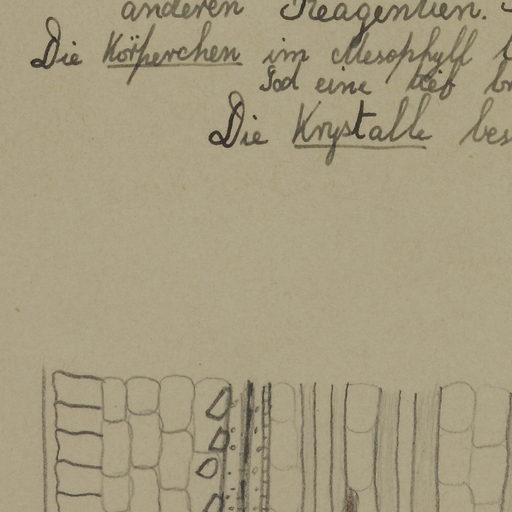 anderen Reagentien.
Die Körperchen im Mesophyll
Jod eine tief
Die Krystalle bes